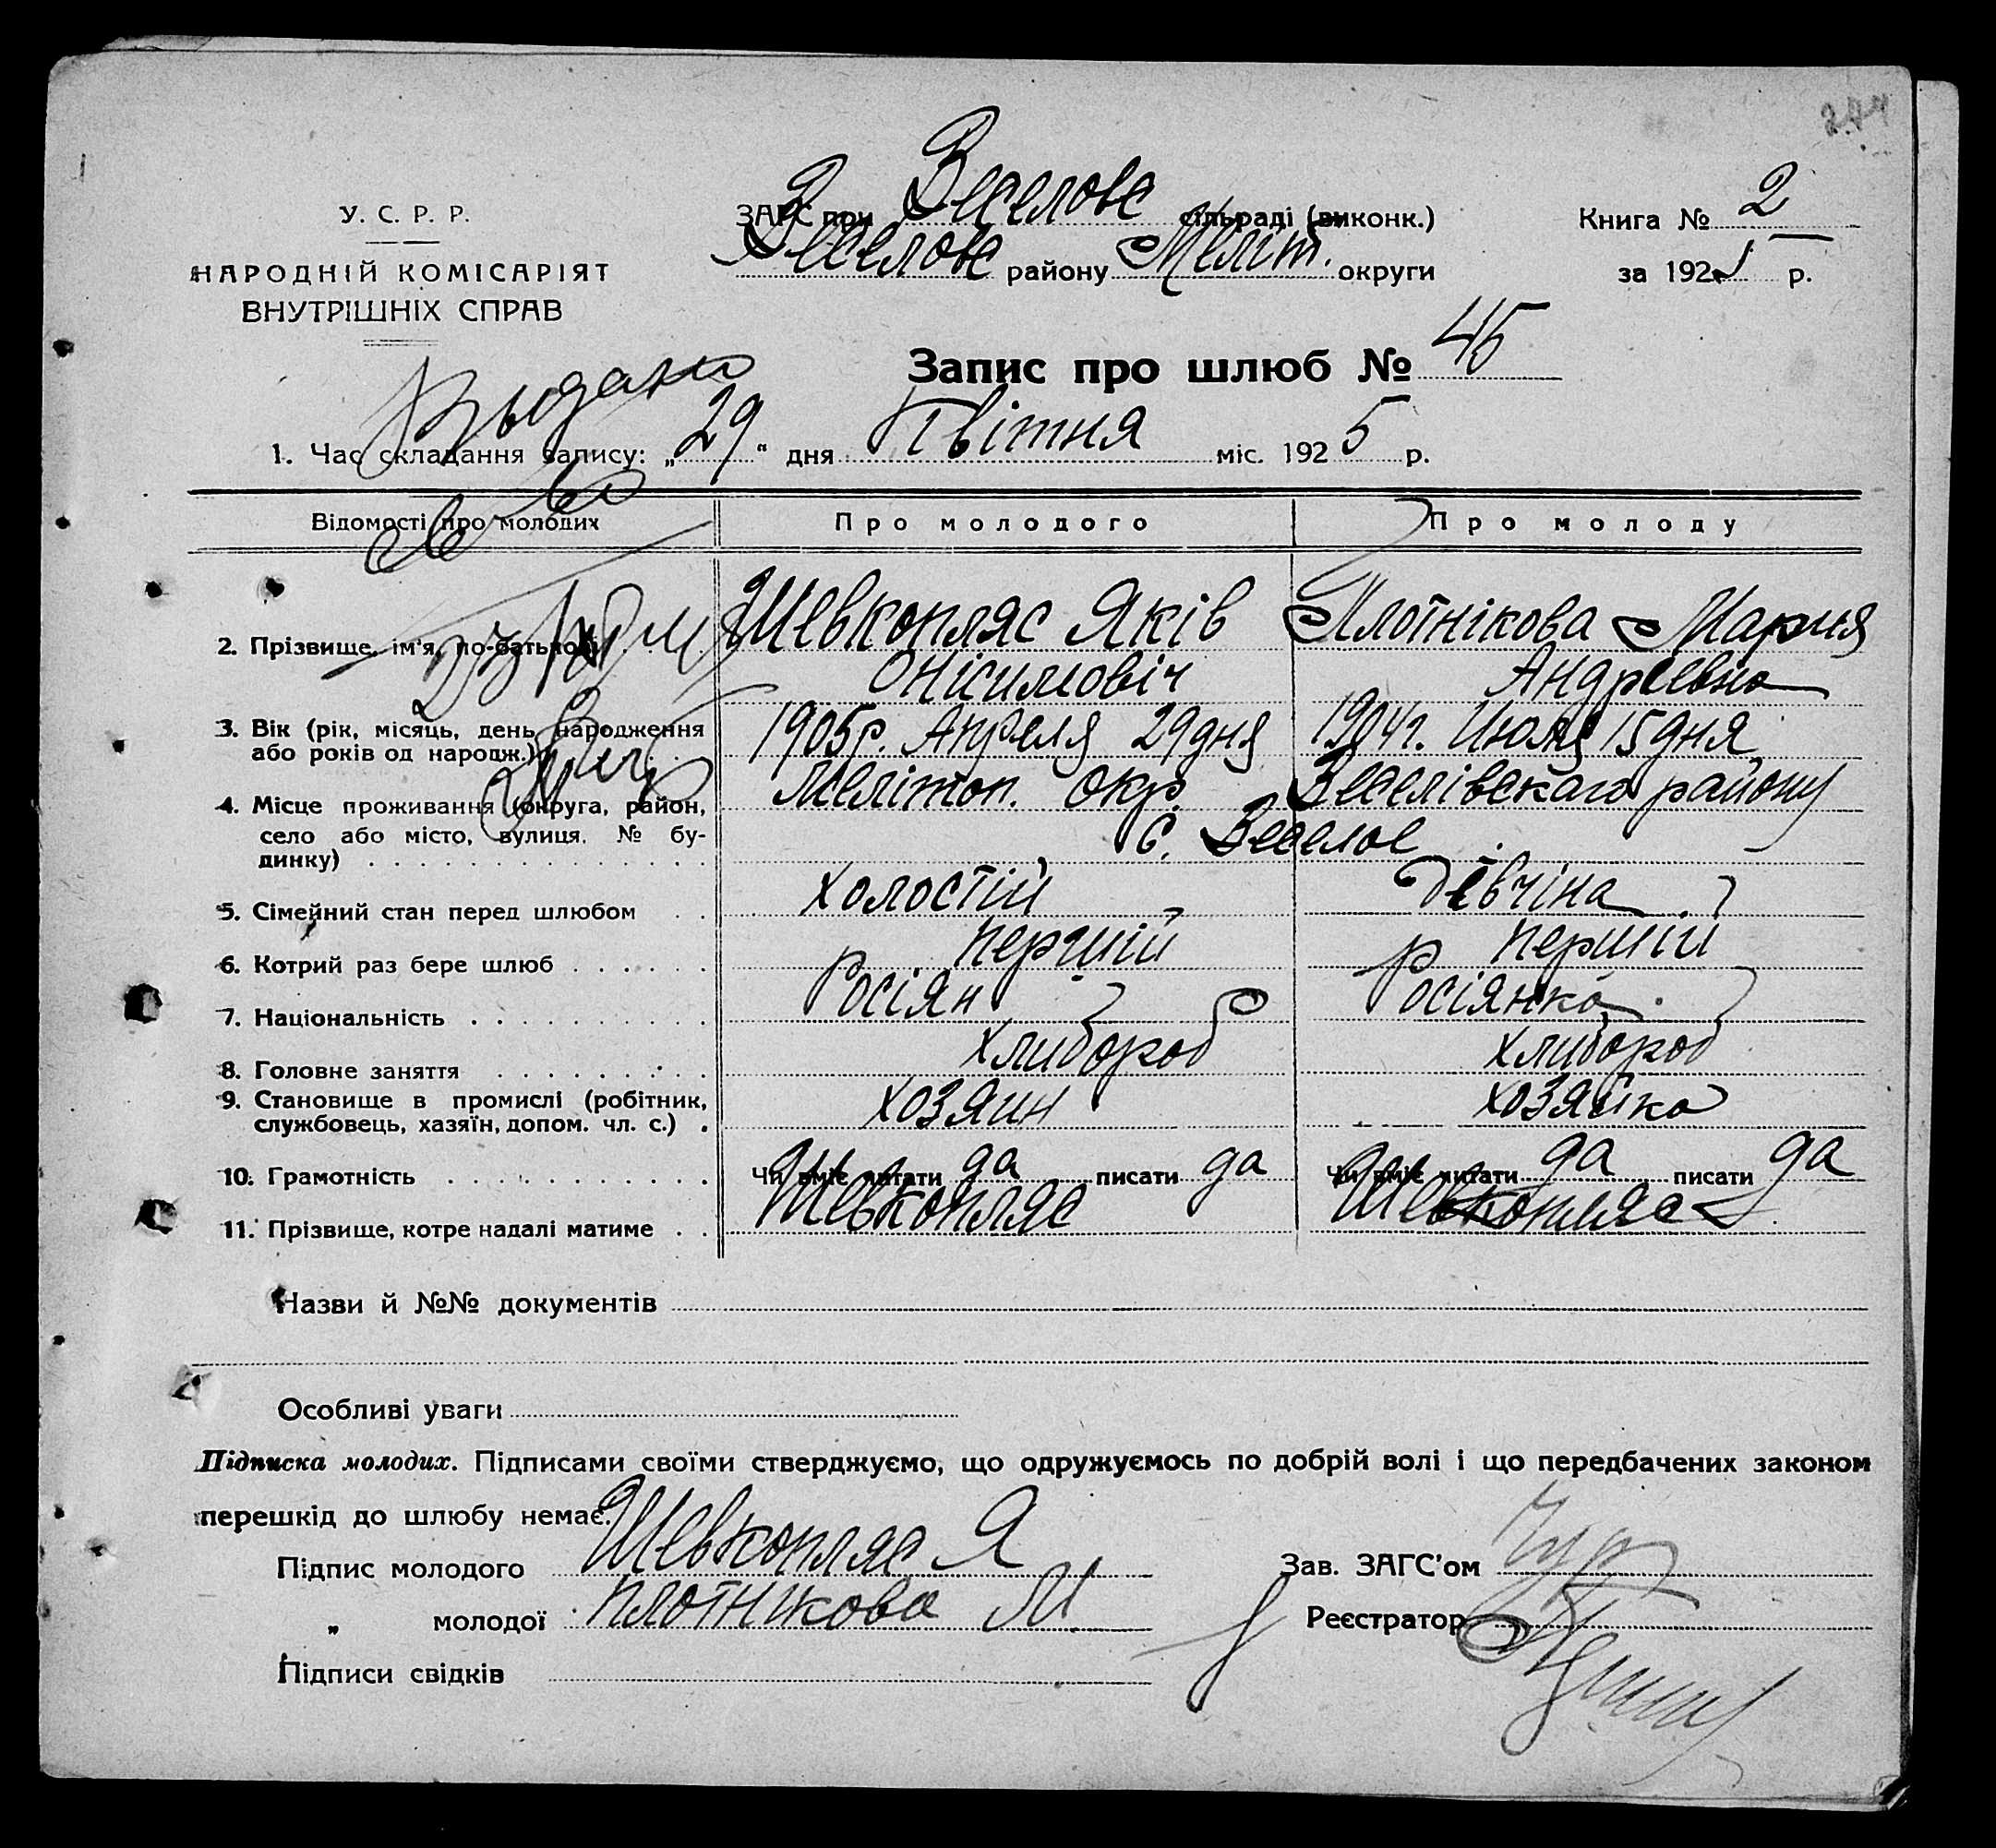 У. С. Р. Р.
НАРОДНІЙ КОМІСАРІЯТ
ВНУТРІШНІХ СПРАВ
ЗАГС при Веселовс сільраді (виконк.)
Веселовс району Меліт. округи
Книга № 2
за 1925 р.
Выдано
Запис про шлюб № 45
1. Час складання запису: „29“ дня Квітня міс. 1925 р.
Відомості про молодих Про молодого Про молоду
2. Прізвище, ім'я, по-батькові . Шевкопляс Яків Плотнікова Мария
Онісимовіч Андріевна
3. Вік (рік, місяць, день народження 1905р. Апреля 29 дня 1904г. Июля 15 дня
або років од народж.)
4. Місце проживання (округа, район, Мелітоп. окр. Веселівскаго району
село або місто, вулиця, № бу- с. Веселое
динку)
5. Сімейний стан перед шлюбом холостій дівчіна
6. Котрий раз бере шлюб перший перший
7. Національність Росіян Росіянка
8. Головне заняття хлибороб хлибороб
9. Становище в промислі (робітник, хозяин хозяйка
службовець, хазяїн, допом. чл. с.)
10. Грамотність Чи вміє читати да писати да Чи вміє читати да писати да
11. Прізвище, котре надалі матиме Шевкопляс Шевкопляс
Назви й №№ документів
Особливі уваги
Підписка молодих. Підписами своїми стверджуємо, що одружуємось по добрій волі і що передбачених законом
перешкід до шлюбу немає.
Підпис молодого Шевкопляс Я Зав. ЗАГС'ом
„ молодої Плотникова М Реєстратор
Підписи свідків